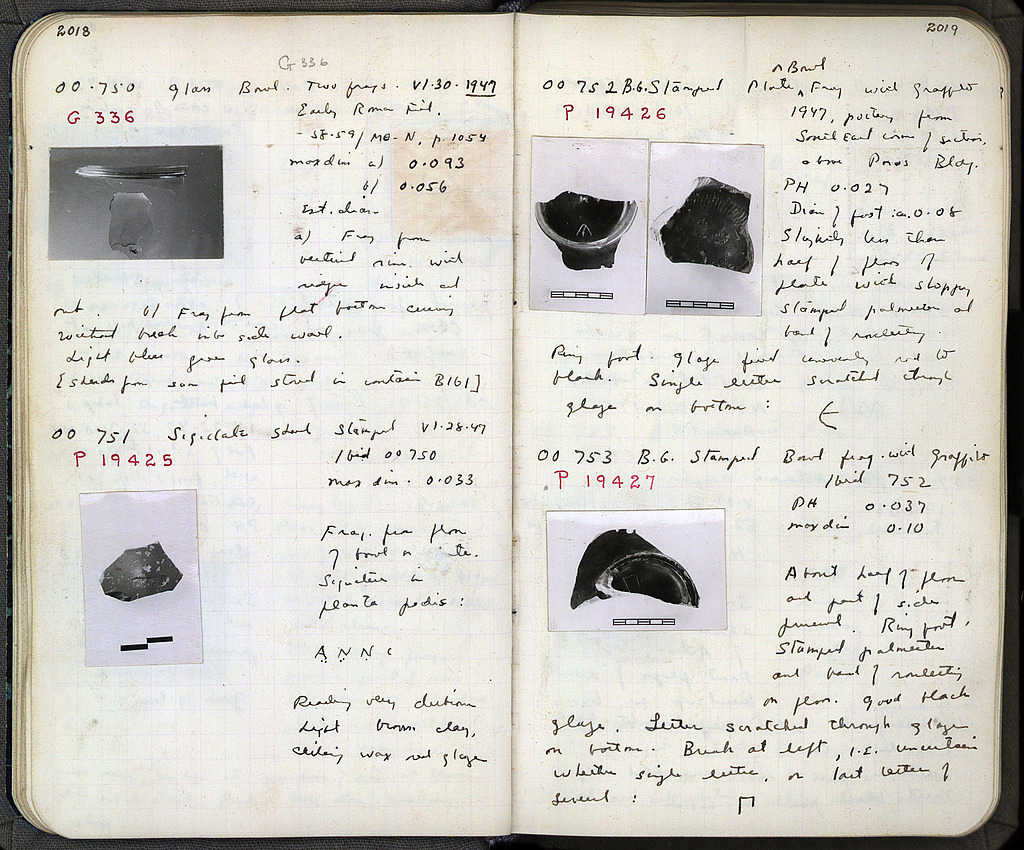 2018
G 336
OO 750 Glass Bowl. Two frags. VI-30-1947
G 336
Early Roman Fill.
58-59/ΜΘ-Ν, p. 1054
max dim a) 0.093
b) 0.056
Est. diam
a) Frag from
vertical rim with
ridge inside and
out. b) Frag from flat bottom curving
without break into side wall.
Light blue green glass.
[sherds from same fill stored in container B161]
OO 751 Sigillata sherd Stamped VI-28-47
P 19425
Ibid OO 750
max dim. 0.033
Frag. from floor
of bowl or plate.
Signature in
planta pedis:
ANNI
Reading very dubious
Light brown clay,
sealing wax red glaze
2019
Bowl
OO 752 B.G. Stamped Plate, Frag with graffito
P 19426
1947, pottery from
South East corner of section,
above Poros Bldg.
PH 0.027
Diam of foot: ca. 0.08
Slightly less than
half of floor of
plate with sloppy
stamped palmettes and
band of rouletting.
Ring foot. Glaze fired unevenly red to
black. Single letter scratched through
glaze on bottom: Є
OO 753 B.G. Stamped Bowl frag. with Graffito
P 19427
Ibid 752
PH 0.037
max dim 0.10
About half of floor
and part of sides
preserved. Ring foot.
Stamped palmettes
and band of rouletting
on floor. Good black
glaze. Letter scratched through glaze
on bottom. Break at left, i.e. uncertain
whether single letter, or last letter of
several: Π